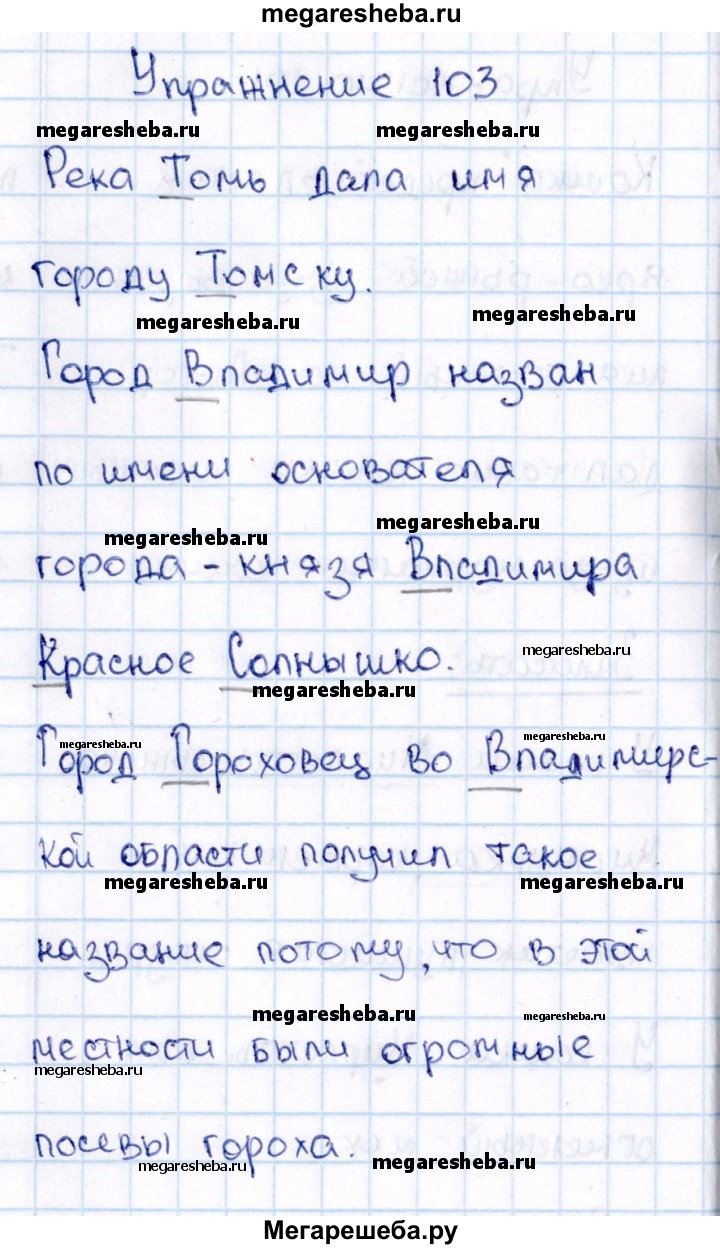 megaresheba.ru
Упражнение 103
megaresheba.ru megaresheba.ru
Река Томь дала имя
городу Томску.
megaresheba.ru megaresheba.ru
Город Владимир назван
по имени основателя
megaresheba.ru megaresheba.ru
города - князя Владимира
megaresheba.ru
Красное Солнышко.
megaresheba.ru
megaresheba.ru megaresheba.ru
Город Гороховец во Владимирс-
кой области получил такое
megaresheba.ru megaresheba.ru
название потому, что в этой
megaresheba.ru megaresheba.ru
местности были огромные
megaresheba.ru
посевы гороха.
megaresheba.ru megaresheba.ru
Мегарешеба.ру